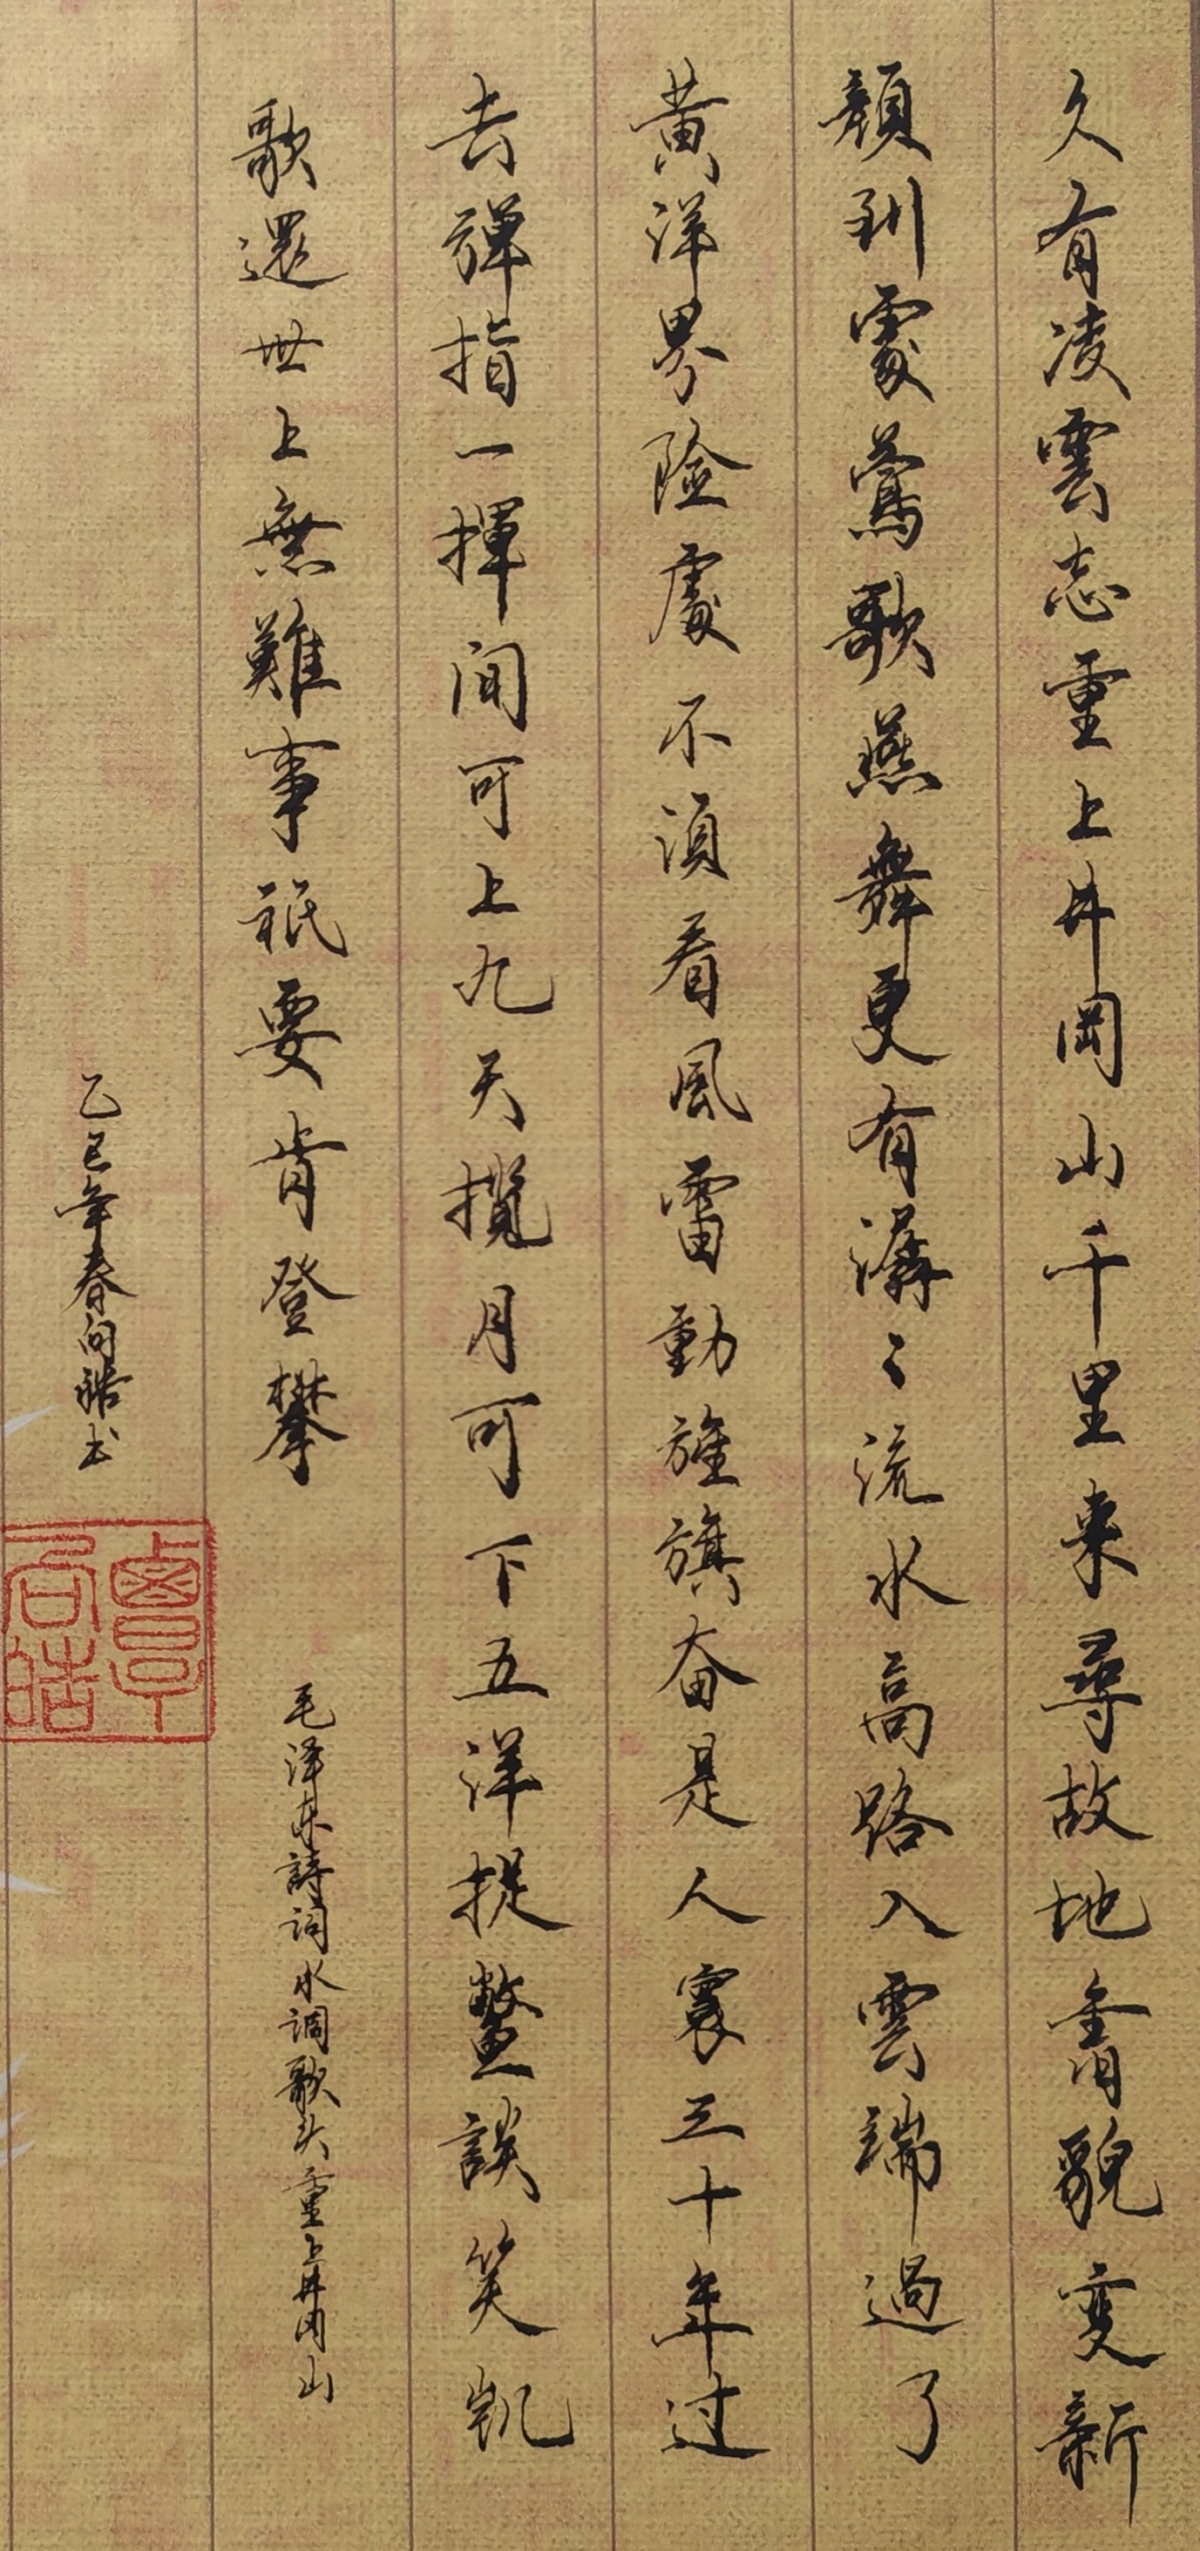 久有凌雲志重上井岡山千里来尋故地舊貌变新
顏到處鶯歌燕舞更有潺〻流水高路入雲端過了
黄洋界险處不須看風雷動旌旗奋是人寰三十年过
去弹指一揮间可上九天揽月可下五洋捉鳖談笑凱
歌還世上無難事祇要肯登攀
毛泽东詩词水调歌头重上井冈山
乙巳年春向皓书